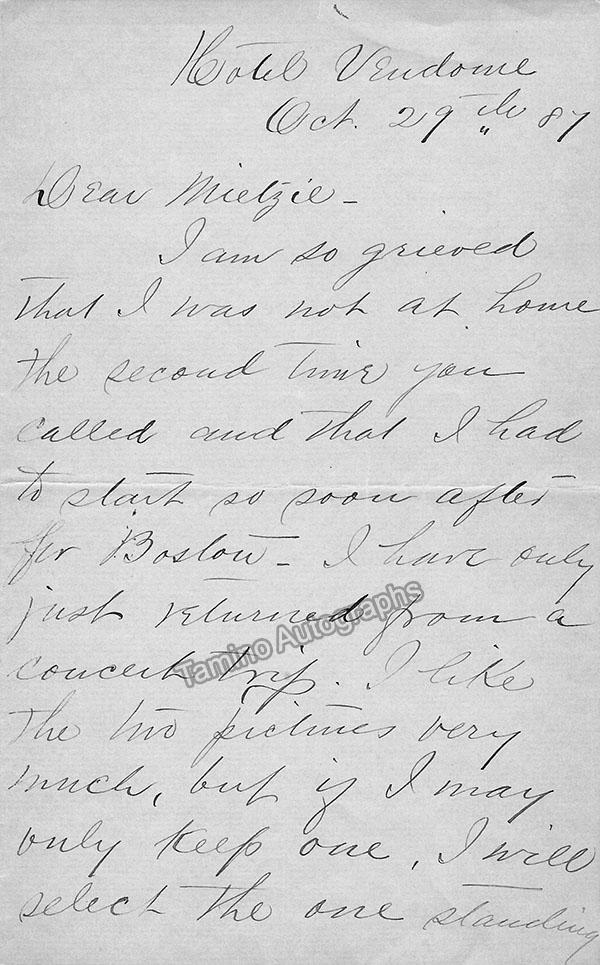 Hotel Vendome
Oct. 29th 87
Dear Mietzie -
I am so grieved
that I was not at home
the second time you
called and that I had
to start so soon after
for Boston - I have only
just returned from a
concert trip. I like
the two pictures very
much, but if I may
only keep one, I will
select the one standing
Tamino Autographs